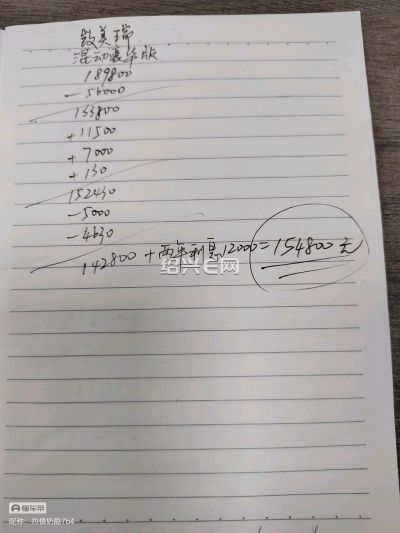 凯美瑞
混动豪华版
189800
-56000
133800
+11500
+7000
+130
152430
-5000
-4630
142800 + 两年利息12000=154800元
绍兴E网
懂车帝
昵称：热情奶酪7b4